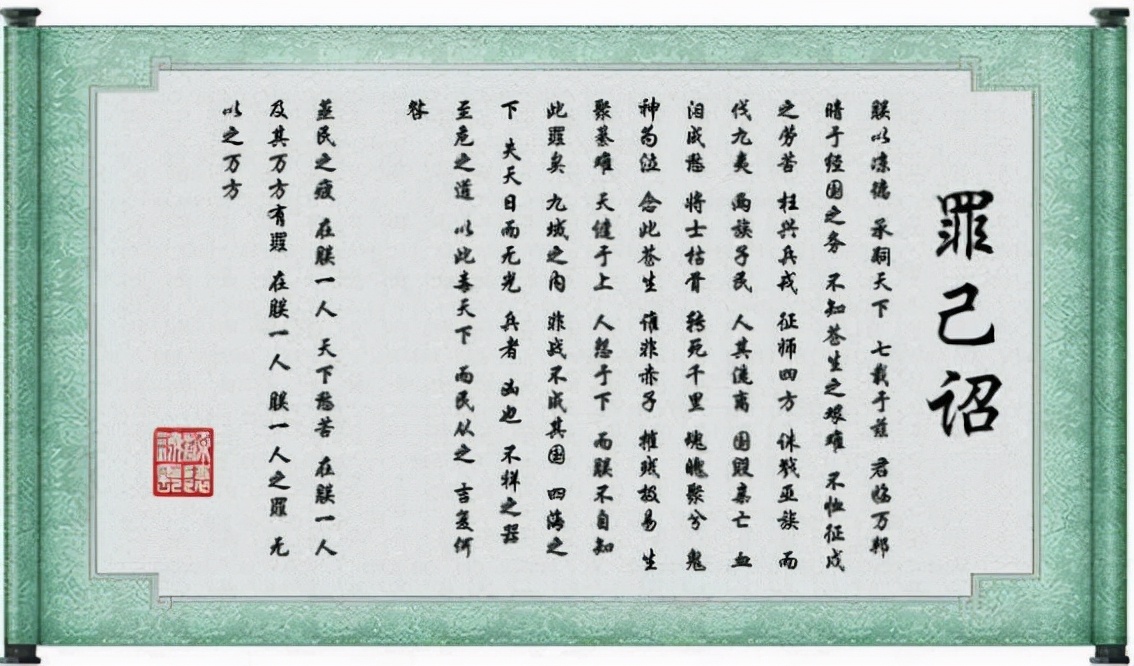 罪己诏
朕以凉德 承祠天下 七载于兹 君临万邦
暗于经国之务 不知苍生之艰难 不恤征戍
之劳苦 枉兴兵戎 征师四方 诛戮亚族 而
伐九夷 两族子民 人其流离 国毁家亡 血
泪成愁 将士枯骨 转死千里 魂魄聚兮 鬼
神为泣 念此苍生 谁非赤子 摧残极易 生
聚綦难 天谴于上 人怨于下 而朕不自知
此罪矣 九城之内 非战不成其国 四海之
下 失天日而无光 兵者 凶也 不祥之器
至危之道 以此毒天下 而民从之 吉复何
咎
蒸民之疲 在朕一人 天下愁苦 在朕一人
及其万方有罪 在朕一人 朕一人之罪 无
以之万方